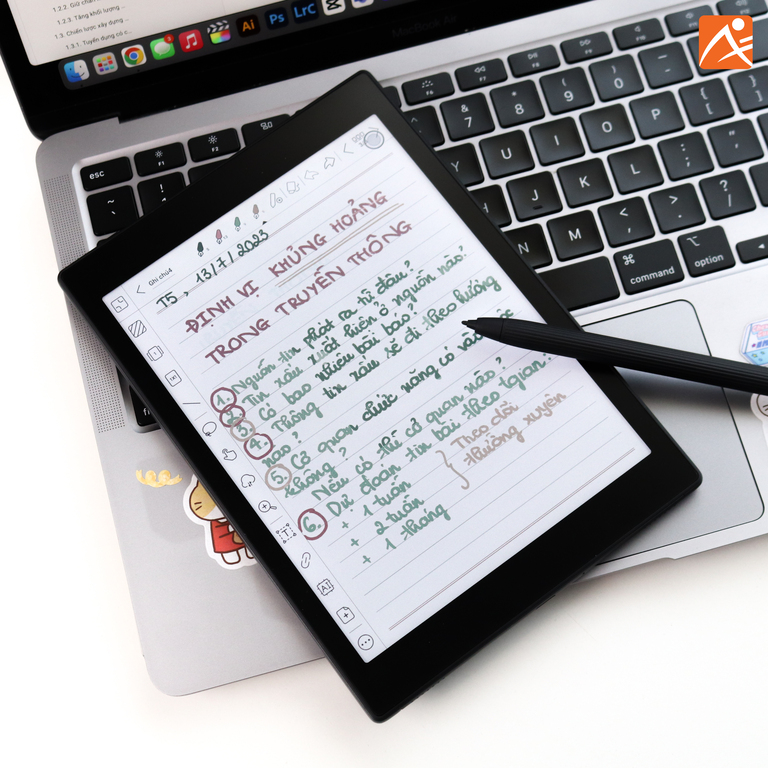 1.2.2. Giữ chân
1.2.3. Tăng khối lượng ...
1.3. Chiến lược xây dựng ...
1.3.1. Tuyển dụng có c...
Ai Ps LrC
MacBook Air
esc F1 F2 F6 F7 F8 F9 F10 F11
& 7 * 8 ( 9 ) 0 _ - + =
~ ` ! 1
Y U I O P { [ } ]
J K L : ; " '
N M < , > . ? /
⌘ command ⌥ option
Ghi chú4
T5, 13/7/2023
ĐỊNH VỊ KHỦNG HOẢNG
TRONG TRUYỀN THÔNG
1. Nguồn tin phát ra từ đâu?
2. Tin xấu xuất hiện ở nguồn nào?
3. Có bao nhiêu bài báo?
4. Thông tin xấu sẽ đi theo hướng
nào?
5. Cơ quan chức năng có vào
không?
Nếu có thì cơ quan nào?
6. Dự đoán tin bài theo tgian:
+ 1 tuần
+ 2 tuần
+ 1 tháng
} Theo dõi
thường xuyên